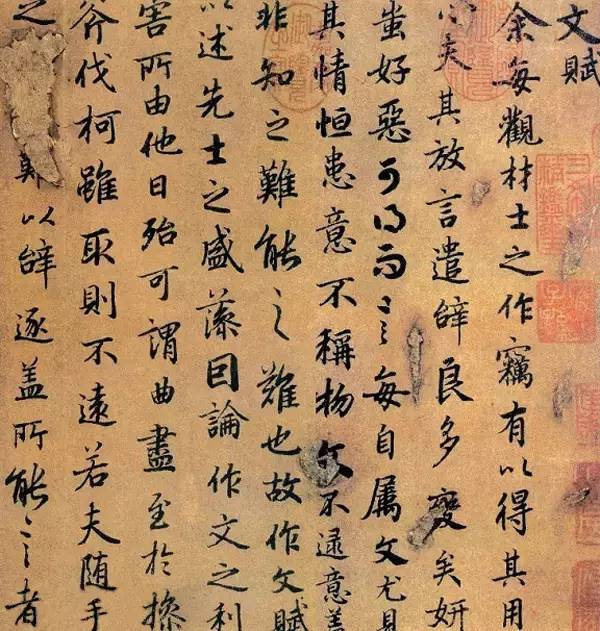 文賦
余每觀材士之作竊有以得其用
心夫其放言遣辤良多變矣妍
蚩好惡可得而言每自属文尤見
其情恒患意不稱物文不逮意盖
非知之難能之難也故作文賦
以述先士之盛藻因論作文之利
害所由他日殆可謂曲盡至於操
斧伐柯雖取則不遠若夫随手
之難以辤逐盖所能言者